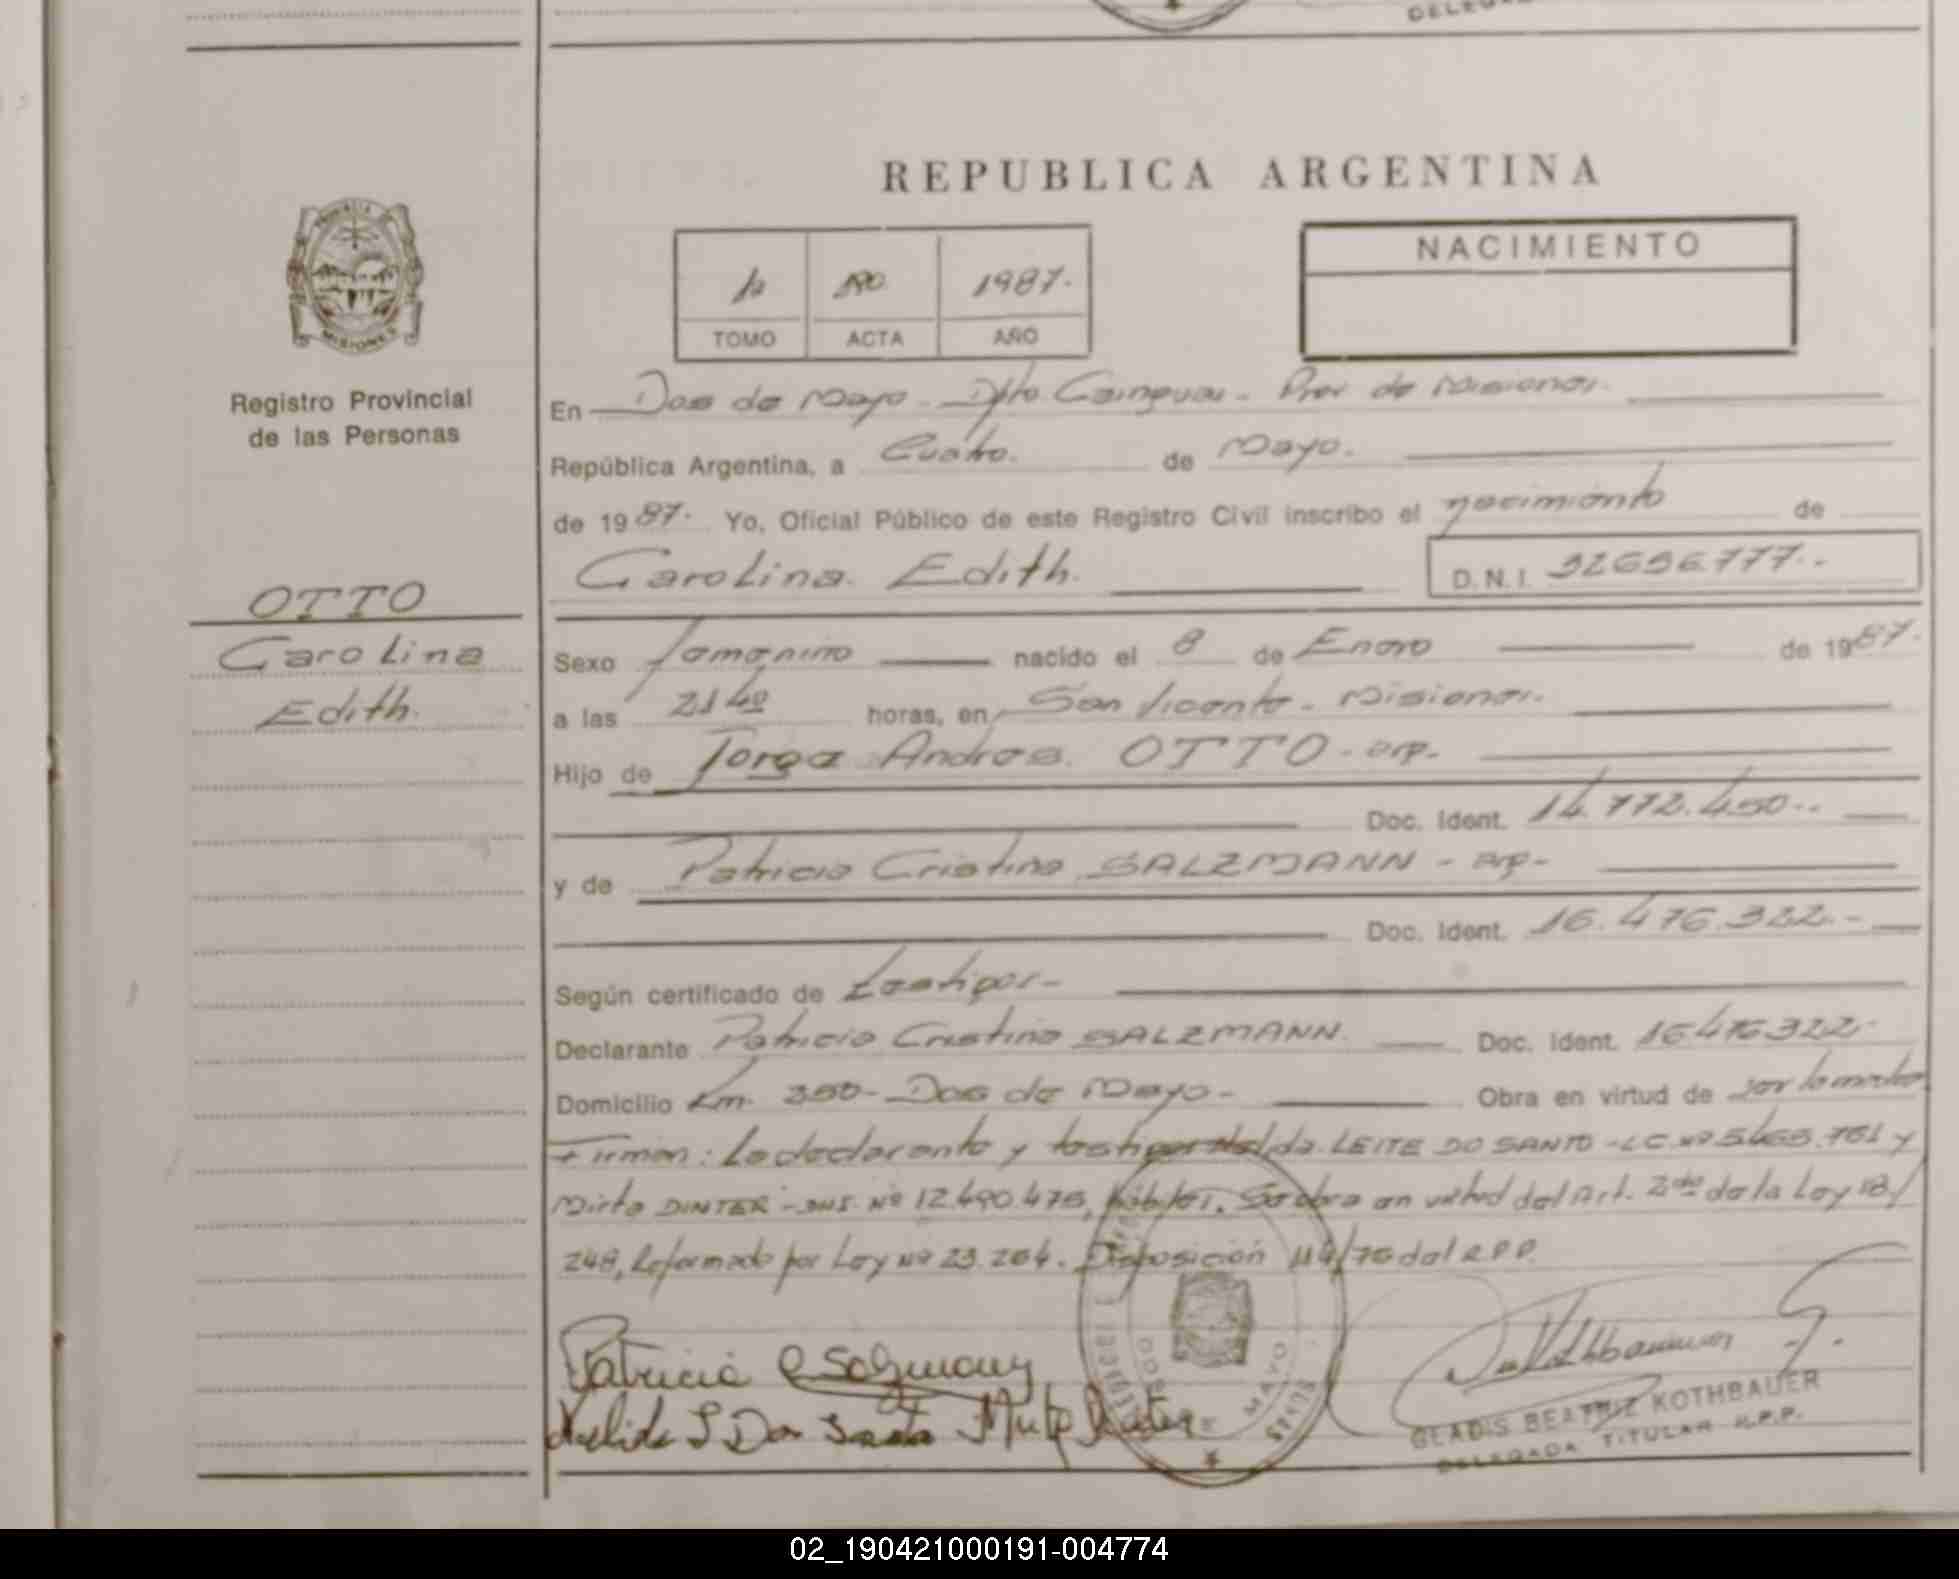 DELEGA
REPUBLICA ARGENTINA
PROVINCIA
MISIONES
Registro Provincial
de las Personas
1º 190 1987.
TOMO ACTA AÑO
NACIMIENTO
En Dos de Mayo - Dpto Cainguas - Prov de Misiones.
República Argentina, a Cuatro. de Mayo.
de 1987. Yo, Oficial Público de este Registro Civil inscribo el nacimiento de
Carolina Edith. D.N.I. 32656.777.-
OTTO
Carolina
Edith.
Sexo femenino nacido el 8 de Enero de 1987.
a las 21 40 horas, en San Vicente - Misiones.
Hijo de Jorge Andres OTTO - arg.
Doc. Ident. 14.772.450.-
y de Patricia Cristina SALZMANN - arg -
Doc. Ident. 16.476.322.-
Según certificado de testigos -
Declarante Patricia Cristina SALZMANN. Doc. Ident. 16476322.
Domicilio Km. 350 - Dos de Mayo - Obra en virtud de ser la madre
Firman: La declarante y testigos LEITE DO SANTO - LC. Nº 5.465.761 y
Mirta DINTER - DNI. Nº 12.490.475, hábiles. Se obra en virtud del Art. 2do de la Ley 18/
248, Reformado por Ley Nº 23.264. Disposición 114/76 del R.P.P.
Patricia C Salzmann
Nelida S Dos Santo Mirta Dinter
DOS DE MAYO
Kothbauer G.
GLADIS BEATRIZ KOTHBAUER
DELEGADA TITULAR R.P.P.
02_190421000191-004774